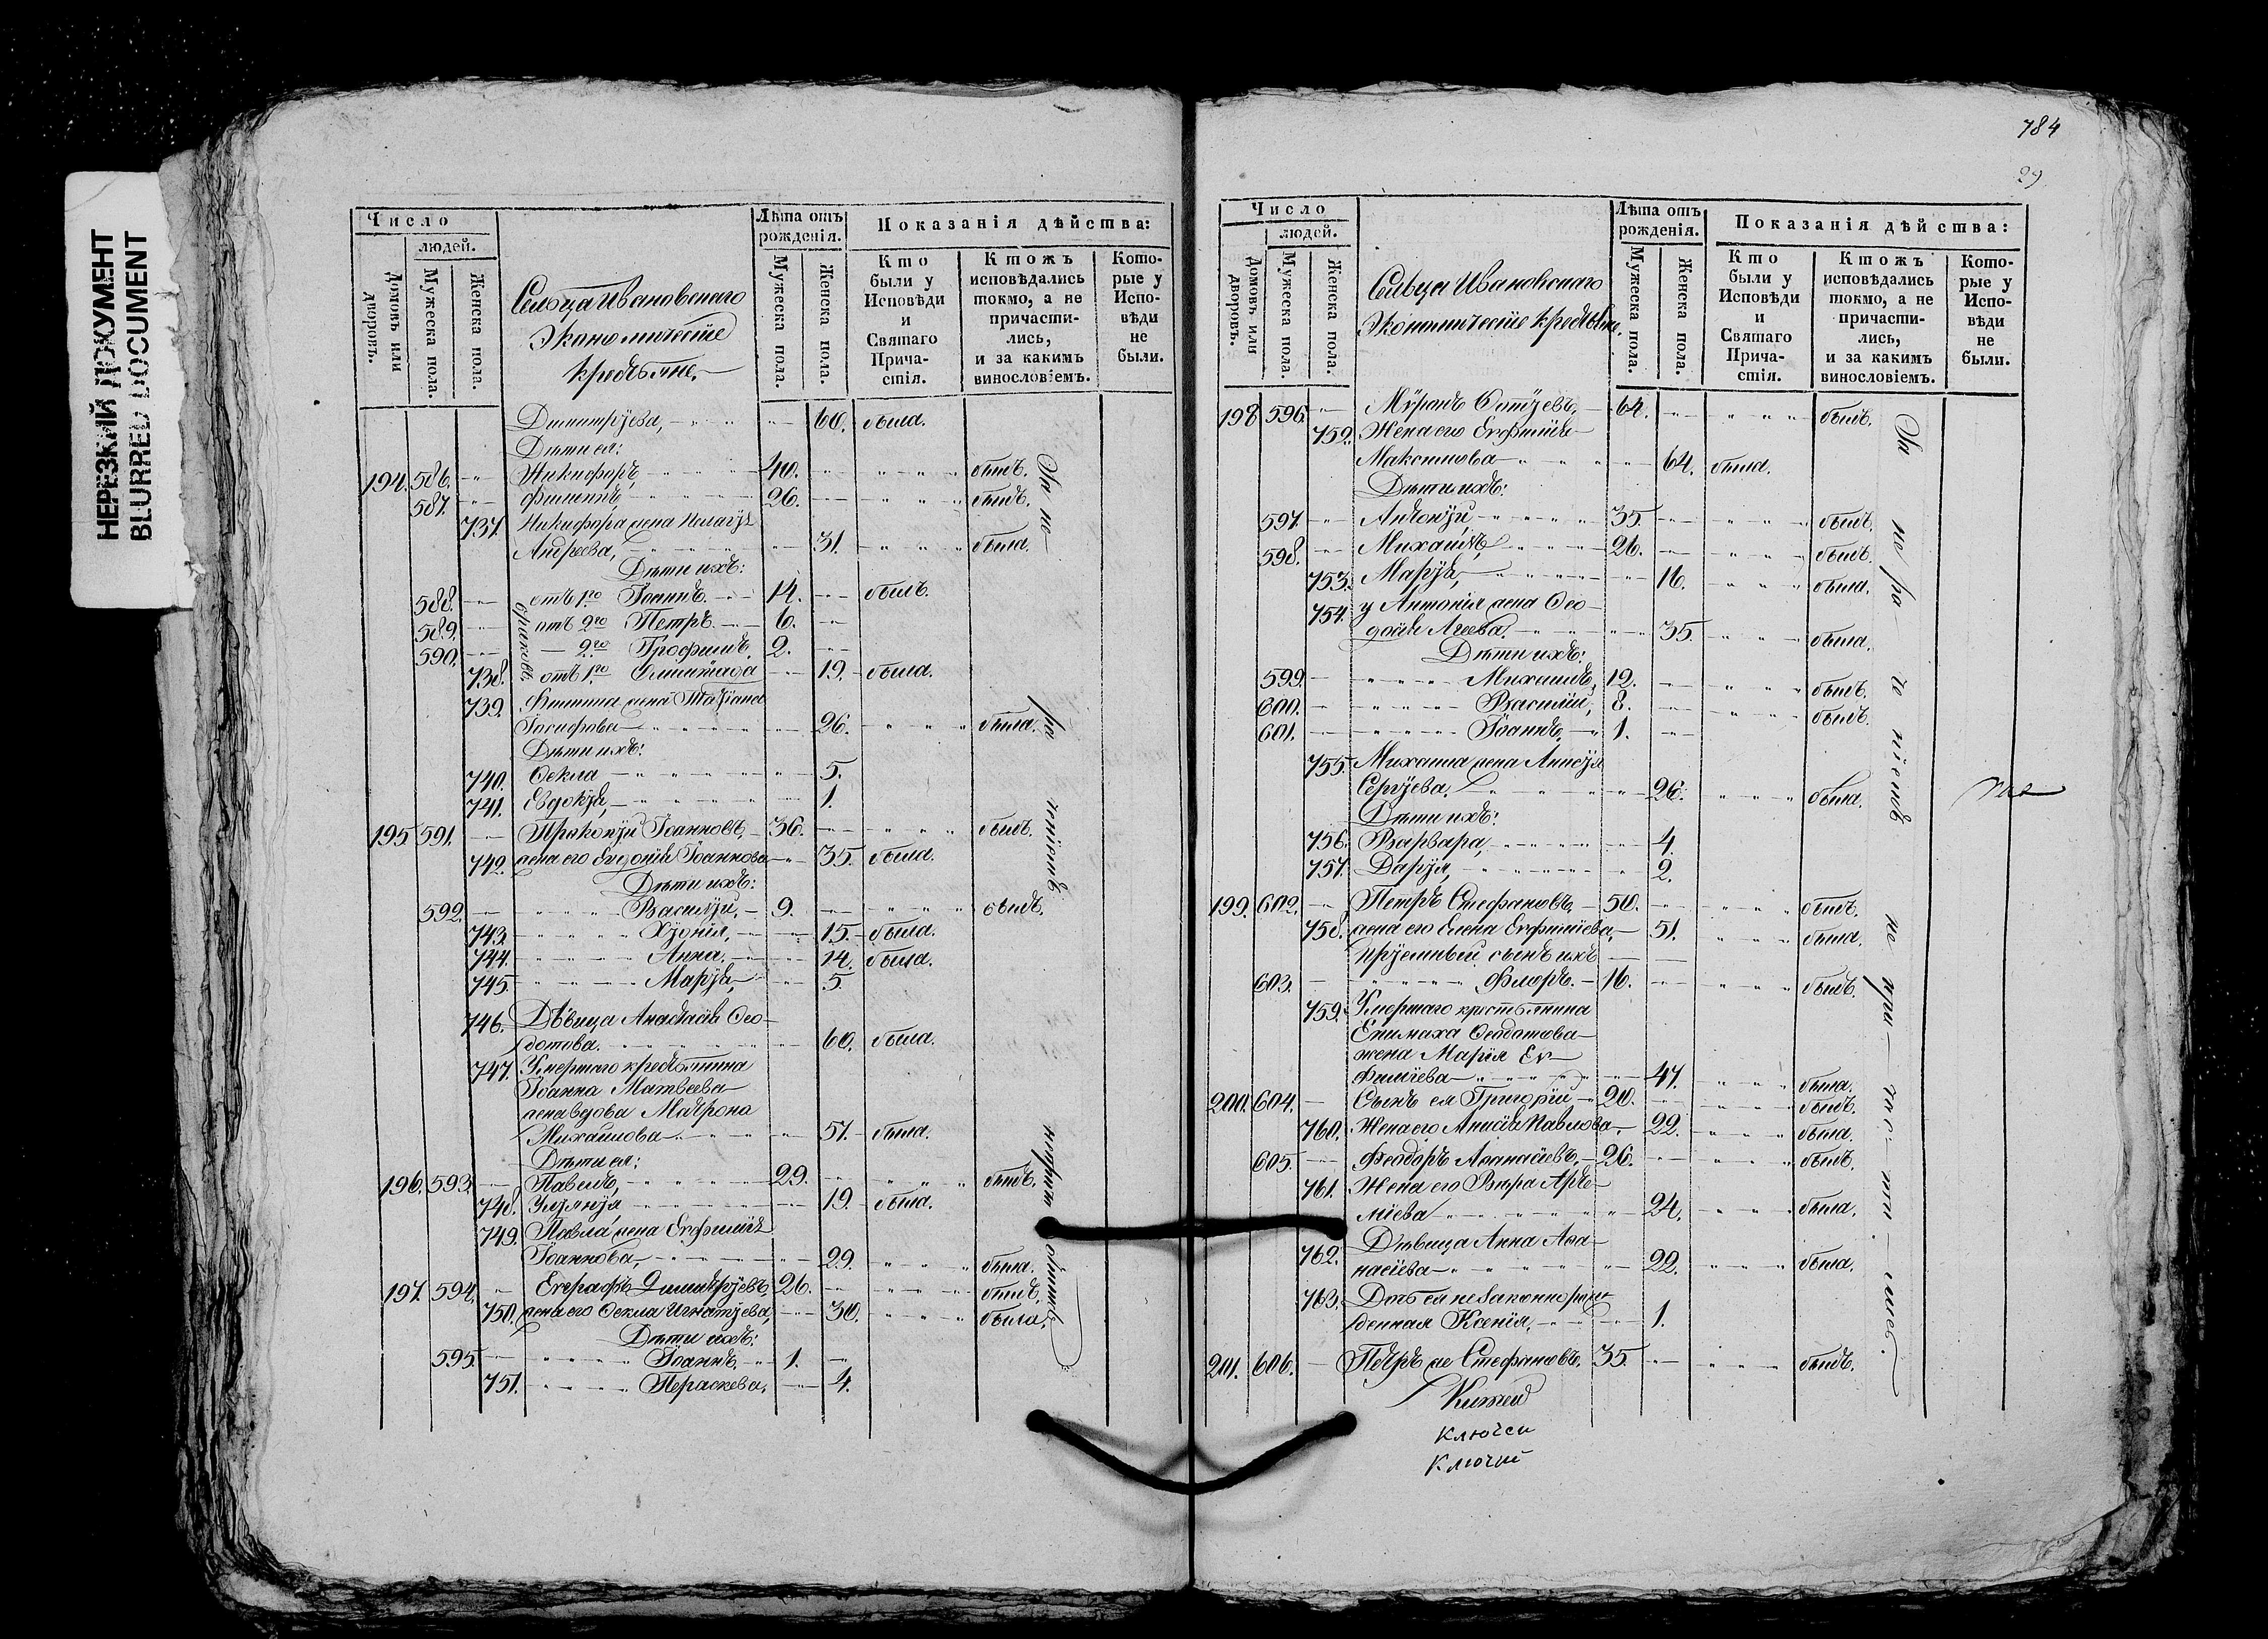 НЕРЕЗКИЙ ДОКУМЕНТ
BLURRED DOCUMENT
Число
людей.
Домовъ или дворовъ.
Мужеска пола.
Женска пола.
Сельца Ивановскаго
Экономическіе
крестьяне.
Лѣта отъ рожденія.
Мужеска пола.
Женска пола.
Показанія дѣйства:
Кто были у Исповѣди и Святаго Причастія.
Ктожъ исповѣдались токмо, а не причастились, и за какимъ винословіемъ.
Которые у Исповѣди не были.
Димитріева, 60. была.
Дѣти ея:
194. 586. Никифоръ, 40. былъ.
587. Филиппъ, 26. былъ.
737. Никифора жена Пелагія
Андреева, 31. была.
Дѣти ихъ:
588. отъ 1го Іоаннъ 14. былъ.
589. отъ 2го Петръ 6.
590. 2го Трофимъ 2.
браковъ.
738. отъ 1го 19. была.
739. Филиппа жена Татіана
Іосифова 26. была.
Дѣти ихъ:
740. Ѳекла 5.
741. Евдокія, 1.
195 591. Прокопій Іоанновъ, 36. былъ.
742. жена его Евдокія Іоаннова 35. была.
Дѣти ихъ:
592. Василій, 9. былъ.
743. 15. была.
744. Анна, 14. была.
745. Марія, 5
746. Дѣвица Анастасія Ѳео-
дотова. 60. была.
747. Умершаго крестьянина
Іоанна Матвеева
жена вдова Матрона
Михайлова 51. была.
Дѣти ея:
196. 593. Павелъ, 29. былъ.
748. 19. была.
749. Павла жена Евфимія
Іоаннова, 29. была.
197. 594. Евграфъ Димитріевъ, 26. былъ.
750. жена его Ѳекла Игнатіева, 30. была.
Дѣти ихъ:
595. Іоаннъ, 1.
751. Параскева, 4.
784
29
Число
людей.
Домовъ или дворовъ.
Мужеска пола.
Женска пола.
Сельца Ивановскаго
Экономическіе крестьяне.
Лѣта отъ рожденія.
Мужеска пола.
Женска пола.
Показанія дѣйства:
Кто были у Исповѣди и Святаго Причастія.
Ктожъ исповѣдались токмо, а не причастились, и за какимъ винословіемъ.
Которые у Исповѣди не были.
198 596. 64. былъ.
752. Жена его Евфимія
Максимова 64. была.
Дѣти ихъ:
597. Антоній, 35. былъ.
598. Михаилъ, 26. былъ.
753. Марія, 16. была.
754. у Антонія жена Ѳео-
досія Агеева, 35. была.
Дѣти ихъ:
599. Михаилъ, 12. былъ.
600. Василій, 8. былъ.
601. Іоаннъ, 1.
755. Михаила жена Анисія
Сергіева, 26. была.
Дѣти ихъ:
756. Варвара, 4.
757. Дарія, 2.
199. 602. Петръ Стефановъ, 50. былъ.
758. жена его Елена Евфиміева, 51. была.
пріемный сынъ ихъ
603. Флоръ. 16. былъ.
759. Умершаго крестьянина
Епимаха Ѳеодотова
жена Марія Ев-
фиміева 47. была.
200. 604. Сынъ ея Григорій 20. былъ.
760. Жена его Анисія Павлова, 22. была.
605. Ѳеодоръ Аѳанасіевъ, 26. былъ.
761. Жена его Вѣра Арте-
міева 24. была.
762. Дѣвица Анна Аѳа-
насіева 22. была.
763. Дочь ея незаконнорож-
денная Ксенія, 1.
201. 606. Петръ же Стефановъ. 35. былъ.
Ключи
Ключи